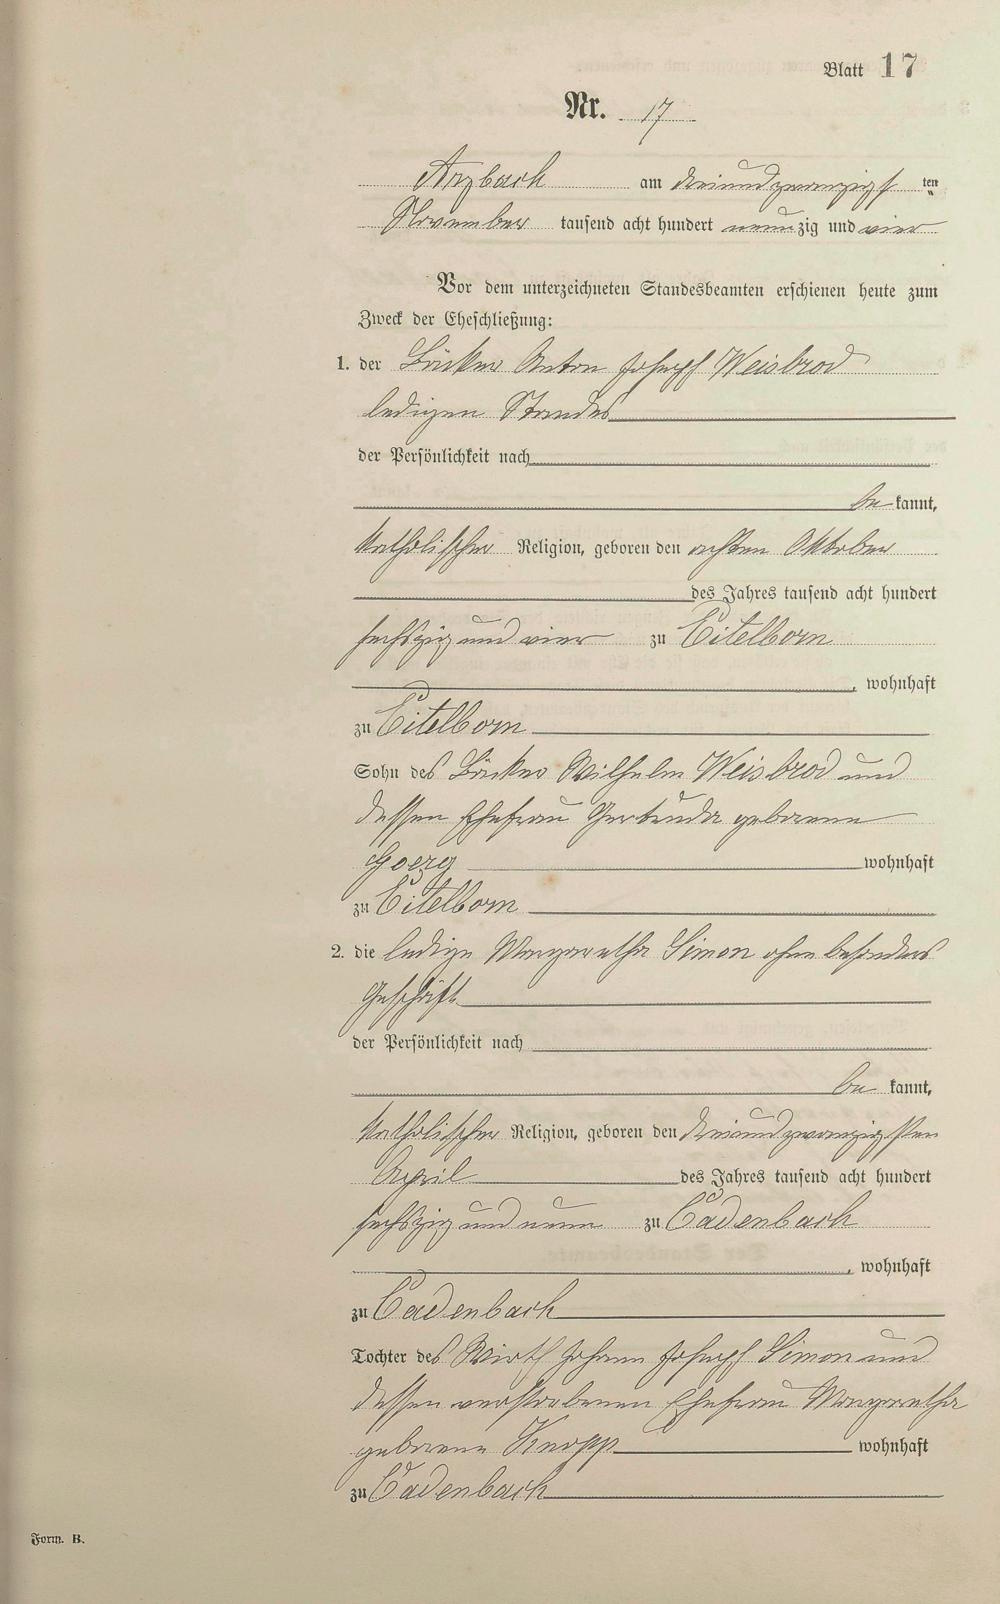 Blatt 17
Nr. 17
Arzbach am dreiundzwanzigsten
November tausend acht hundert neunzig und vier
Vor dem unterzeichneten Standesbeamten erschienen heute zum
Zweck der Eheschließung:
1. der Bäcker Anton Joseph Weisbrod
ledigen Standes
der Persönlichkeit nach
be kannt,
katholischer Religion, geboren den achten Oktober
des Jahres tausend acht hundert
sechszig und vier zu Eitelborn
, wohnhaft
zu Eitelborn
Sohn des Bäckers Wilhelm Weisbrod und
dessen Ehefrau Gertruda geborene
Goerg wohnhaft
zu Eitelborn
2. die ledige Margaretha Simon ohne besonderes
Geschäft
der Persönlichkeit nach
be kannt,
katholischer Religion, geboren den dreiundzwanzigsten
April des Jahres tausend acht hundert
sechszig und neun zu Cadenbach
, wohnhaft
zu Cadenbach
Tochter des Wirth Johann Joseph Simon und
dessen verstorbenen Ehefrau Margaretha
geborene Knopp wohnhaft
zu Cadenbach
Form. B.